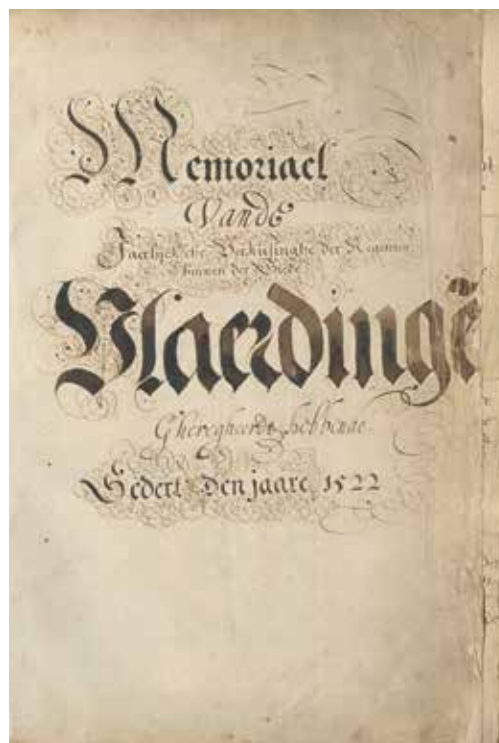 Memoriael
Vande
Jaerlijcksche Verkiesinghe der Regenten
binnen der Stede
Vlaerdingē
Gheregheert hebbende
Sedert den jaare 1522